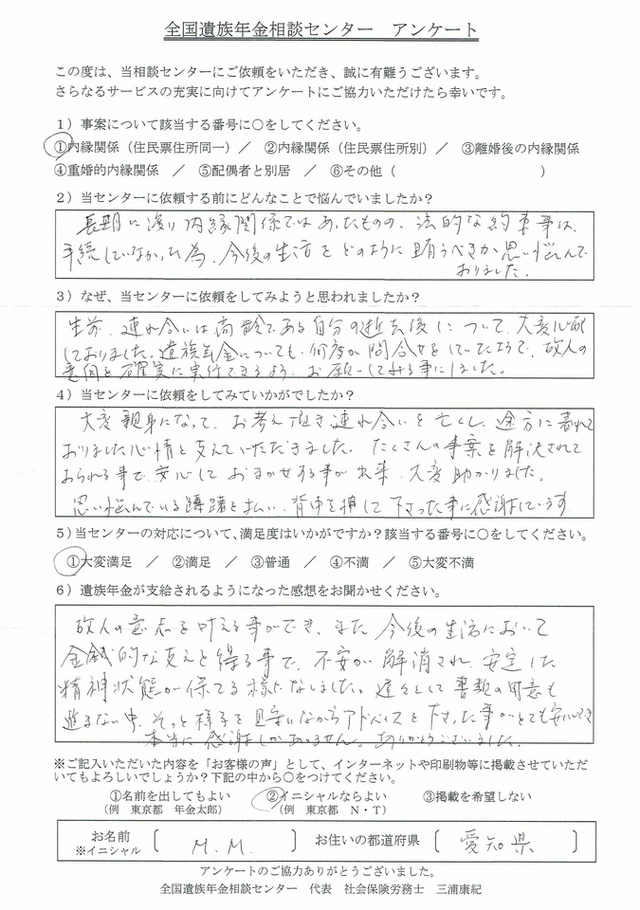 全国遺族年金相談センター　アンケート
この度は、当相談センターにご依頼をいただき、誠に有難うございます。
さらなるサービスの充実に向けてアンケートにご協力いただけたら幸いです。
1）事案について該当する番号に○をしてください。
①内縁関係（住民票住所同一）／　②内縁関係（住民票住所別）／　③離婚後の内縁関係
④重婚的内縁関係　／　⑤配偶者と別居　／　⑥その他（　　　　　　　　　）
2）当センターに依頼する前にどんなことで悩んでいましたか？
長期に渡り内縁関係ではあったものの、法的な約束事は、
手続していなかった為、今後の生活をどのように賄うべきか思い悩んで
おりました。
3）なぜ、当センターに依頼をしてみようと思われましたか？
生前、連れ合いは高齢である自分の逝去後について、大変心配
しておりました。遺族年金についても、何度か問合せをしていたようで、故人の
意向を確実に実行できるよう、お願いしてみる事にしました。
4）当センターに依頼をしてみていかがでしたか？
大変親身になって、お考え頂き連れ合いを亡くし、途方に暮れて
おりました心情を支えていただきました。たくさんの事案を解決されて
おられる事で、安心しておまかせする事が出来、大変助かりました。
思い悩んでいる躊躇を払い、背中を押して下さった事に感謝しています
5）当センターの対応について、満足度はいかがですか？該当する番号に○をしてください。
①大変満足　／　②満足　／　③普通　／　④不満　／　⑤大変不満
6）遺族年金が支給されるようになった感想をお聞かせください。
故人の意志を叶える事ができ、また今後の生活において
金銭的な支えを得る事で、不安が解消され、安定した
精神状態が保てる様になりました。遅々として書類の用意も
進まない中、そっと様子を見守りながらアドバイスを下さった事がとても
本当に感謝しかありません。ありがとうございました。
※ご記入いただいた内容を「お客様の声」として、インターネットや印刷物等に掲載させていただ
いてもよろしいでしょうか？下記の中から○をつけてください。
①名前を出してもよい　　②イニシャルならよい　　③掲載を希望しない
（例　東京都　年金太郎）　（例　東京都　N・T）
お名前
※イニシャル　〔　M.M.　〕　お住いの都道府県〔　愛知県　〕
アンケートのご協力ありがとうございました。
全国遺族年金相談センター　代表　社会保険労務士　三浦康紀